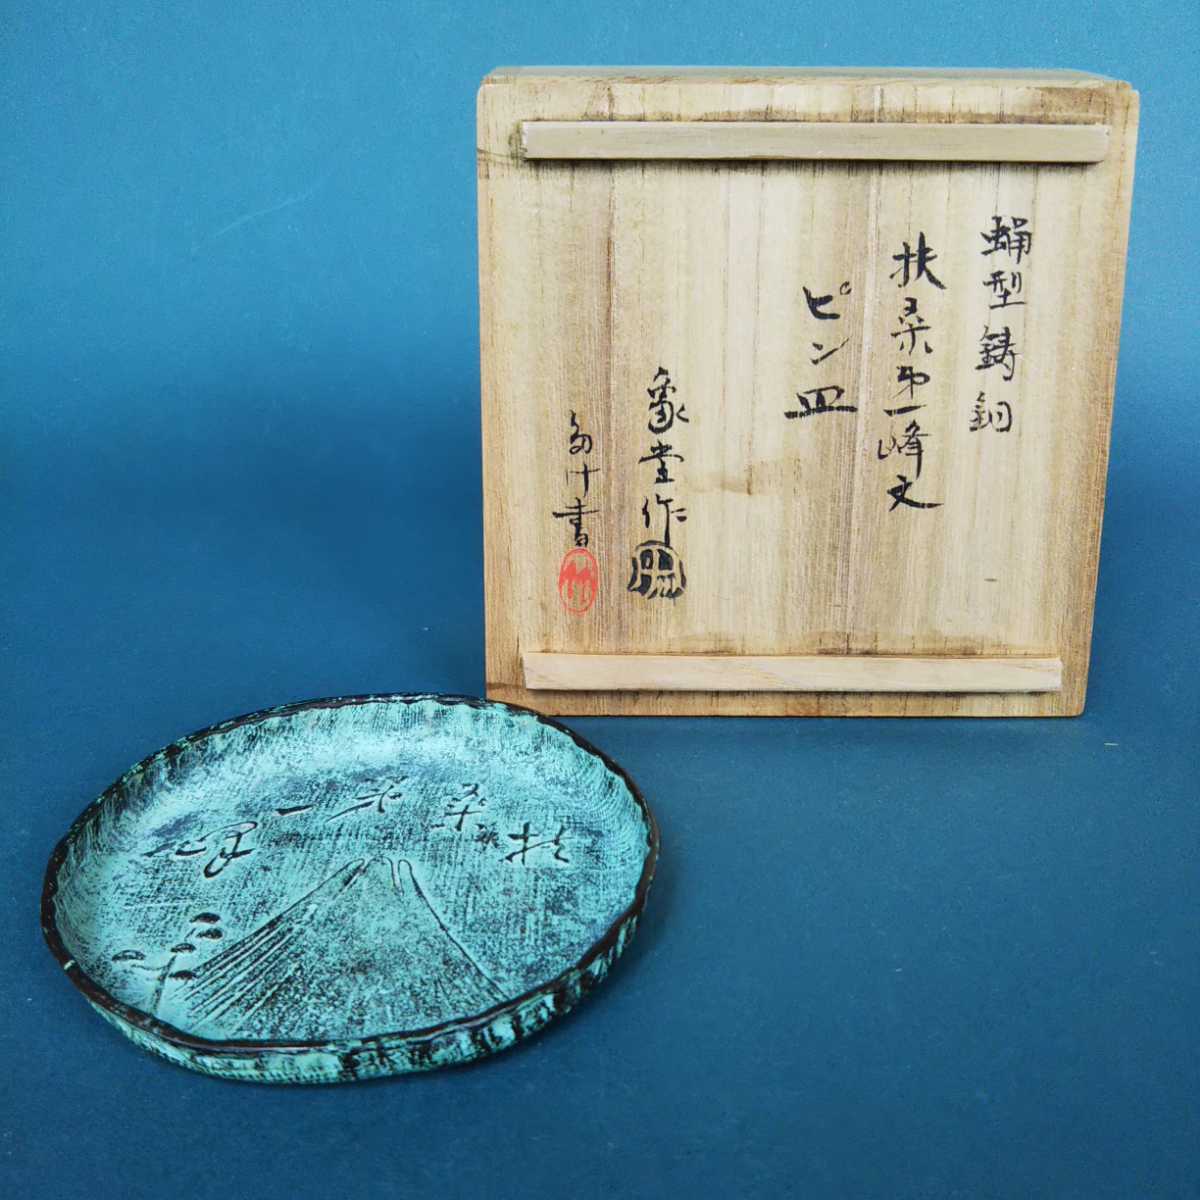 蝋型鋳銅
扶桑第一峰文
ピン皿
象堂作
竹
扶桑第一峯